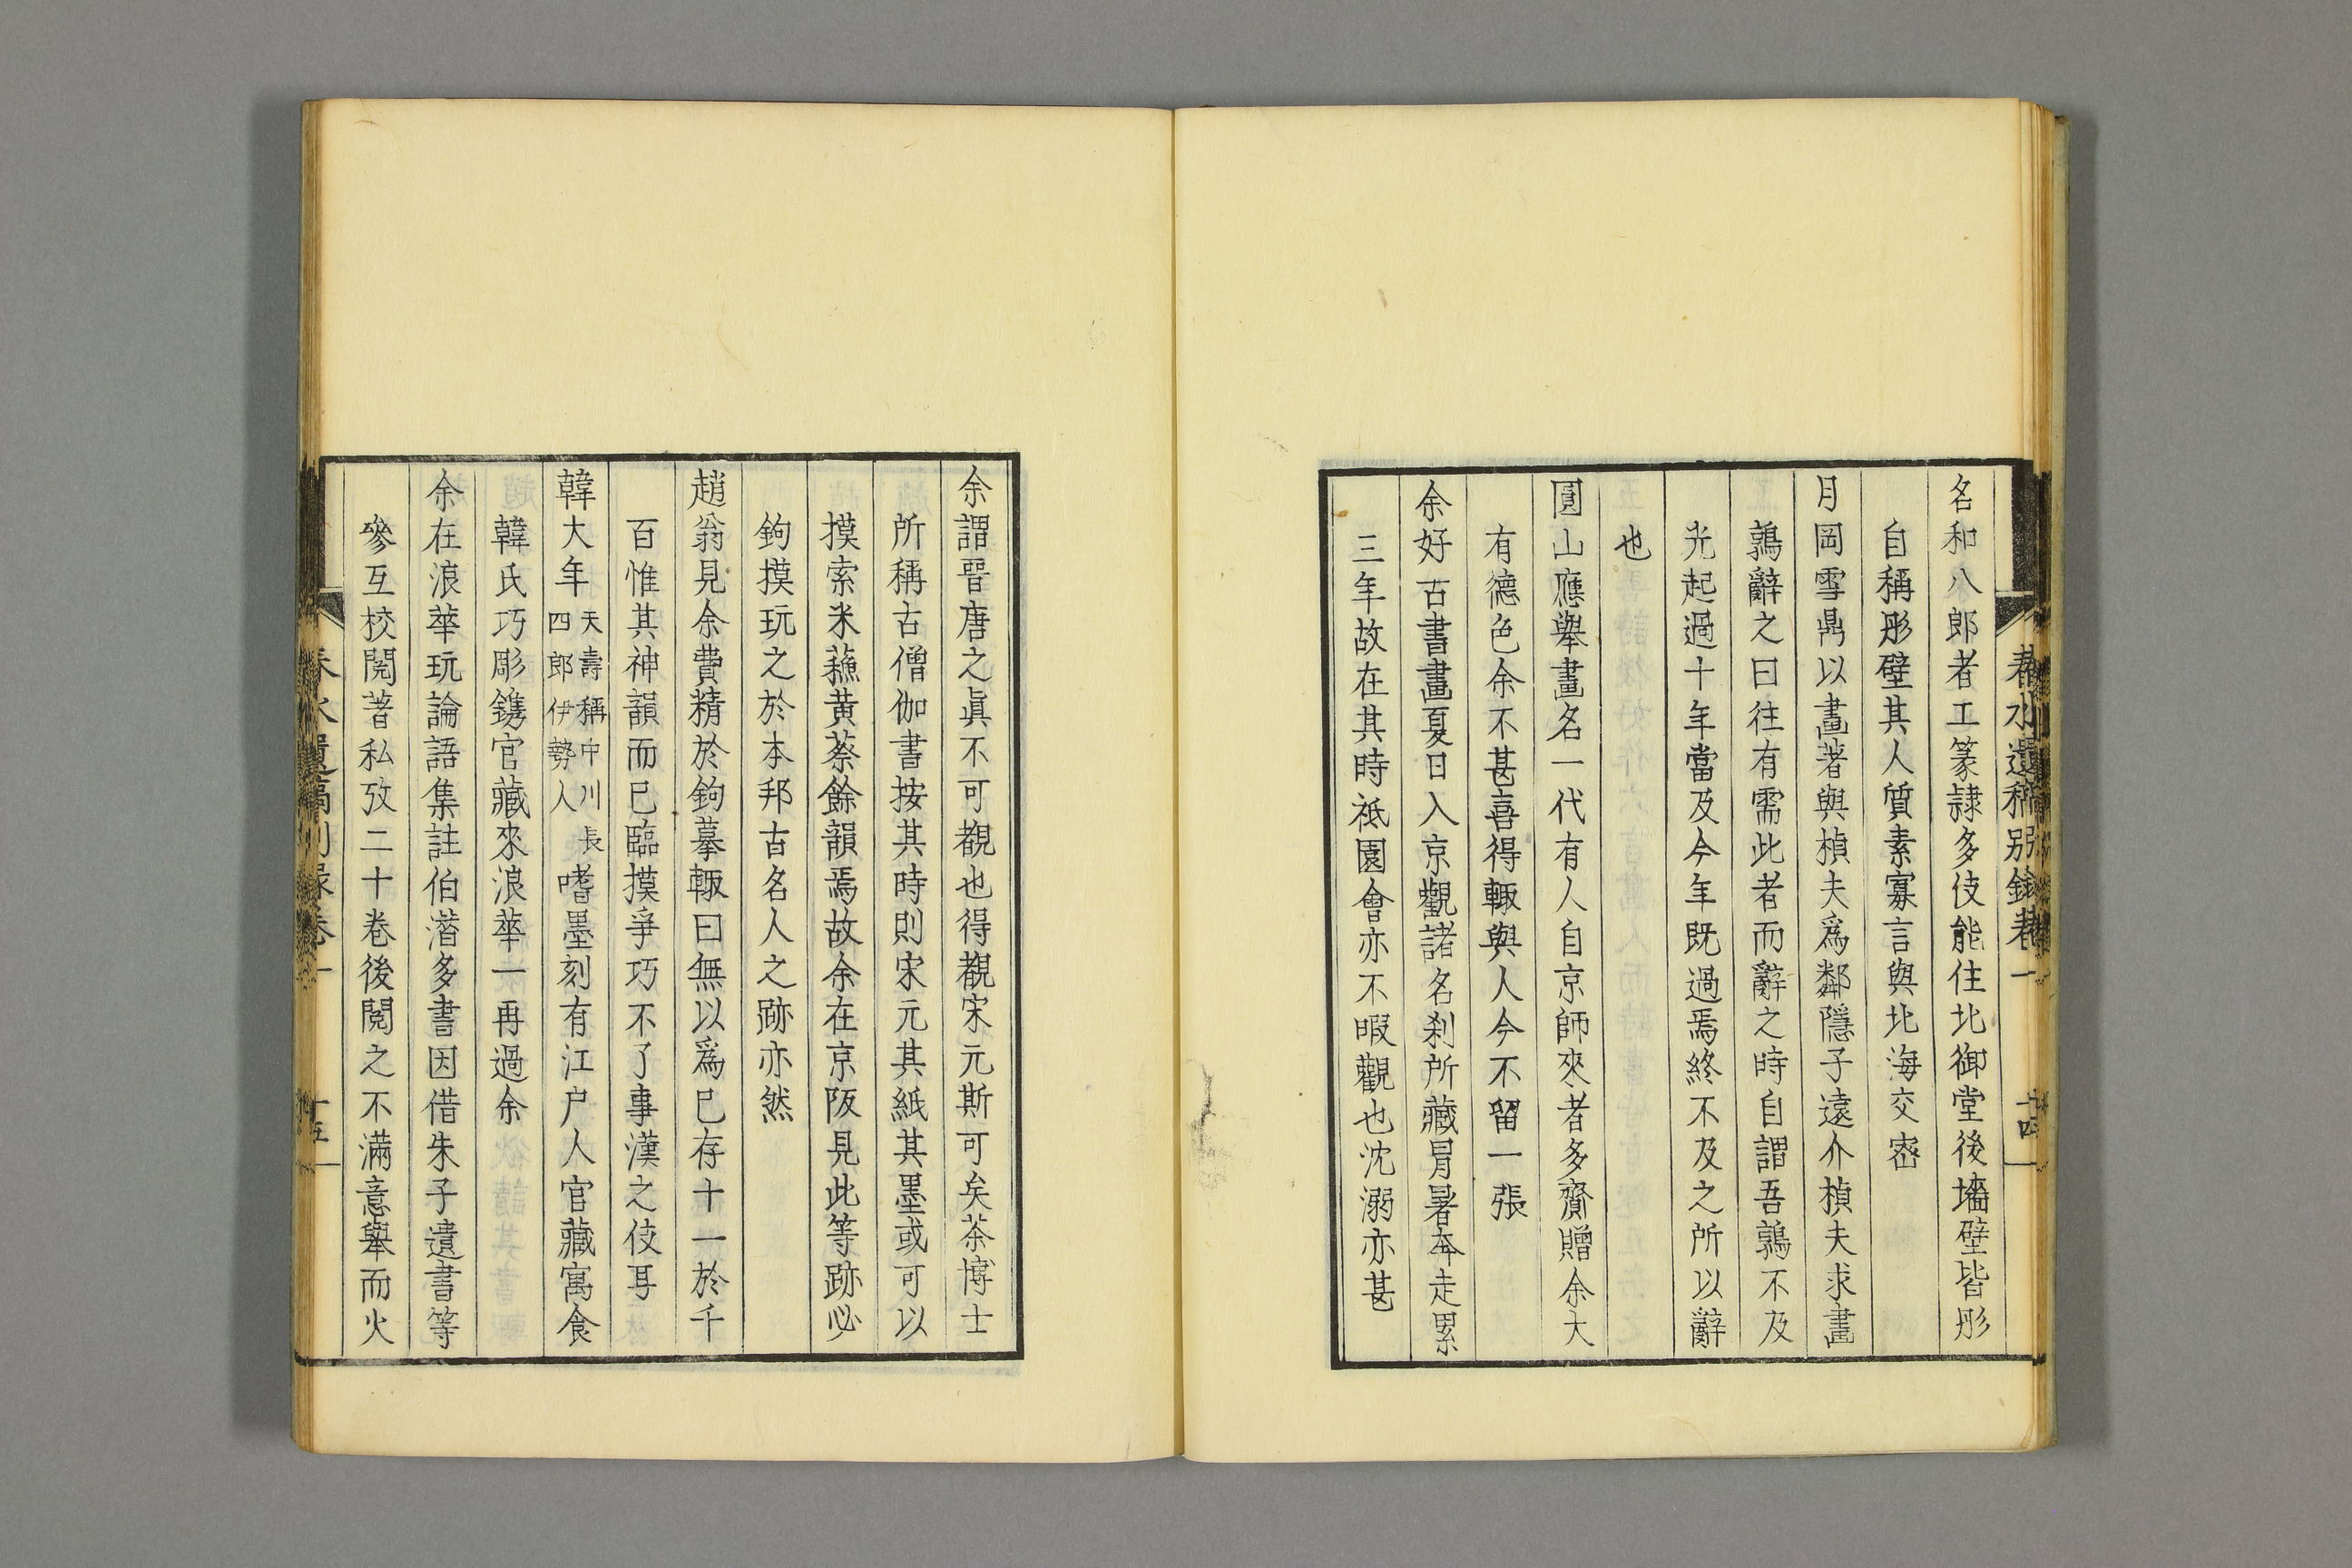 春水遺稿別録卷一
十四
名和八郎者工篆隷多伎能住北御堂後墻壁皆彤
自稱彤壁其人質素寡言與北海交密
月岡雪鼎以畫著與楨夫爲鄰隱子遠介楨夫求畫
鶉辭之曰往有需此者而辭之時自謂吾鶉不及
光起過十年當及今年既過焉終不及之所以辭
也
圓山應擧畫名一代有人自京師來者多齎贈余大
有德色余不甚喜得輙與人今不留一張
余好古書畫夏日入京觀諸名刹所藏冐暑奔走累
三年故在其時祗園會亦不暇觀也沈溺亦甚
余謂晋唐之眞不可覩也得覩宋元斯可矣茶博士
所稱古僧伽書按其時則宋元其紙其墨或可以
摸索米蘓黄蔡餘韻焉故余在京阪見此等跡必
鉤摸玩之於本邦古名人之跡亦然
趙翁見余費精於鉤摹輙曰無以爲已存十一於千
百惟其神韻而已臨摸爭巧不了事漢之伎耳
韓大年天壽稱中川長四郎伊勢人嗜墨刻有江戸人官藏寓食
韓氏巧彫鐫官藏來浪華一再過余
余在浪華玩論語集註伯潛多書因借朱子遺書等
參互校閲著私攷二十卷後閲之不滿意擧而火
春水遺稿別録卷一
十五